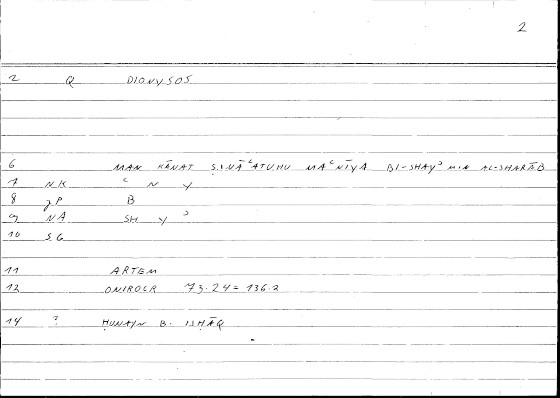 2
2 Q DIONYSOS
6 MAN KĀNAT ṢINĀʿATUHU MAʿNĪYA BI-SHAYʾ MIN AL-SHARĀB
7 NK ʿ N Y
8 gP B
9 NA SH Y ʾ
10 SG
11 ARTEM
12 ONIROCR 73.24 = 136.2
14 ? ḤUNAYN B. ISḤĀQ